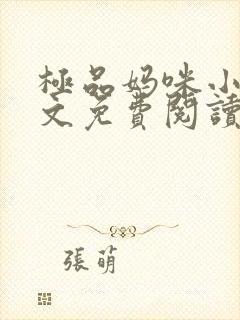 極品妈咪小
文免費閱讀
張萌